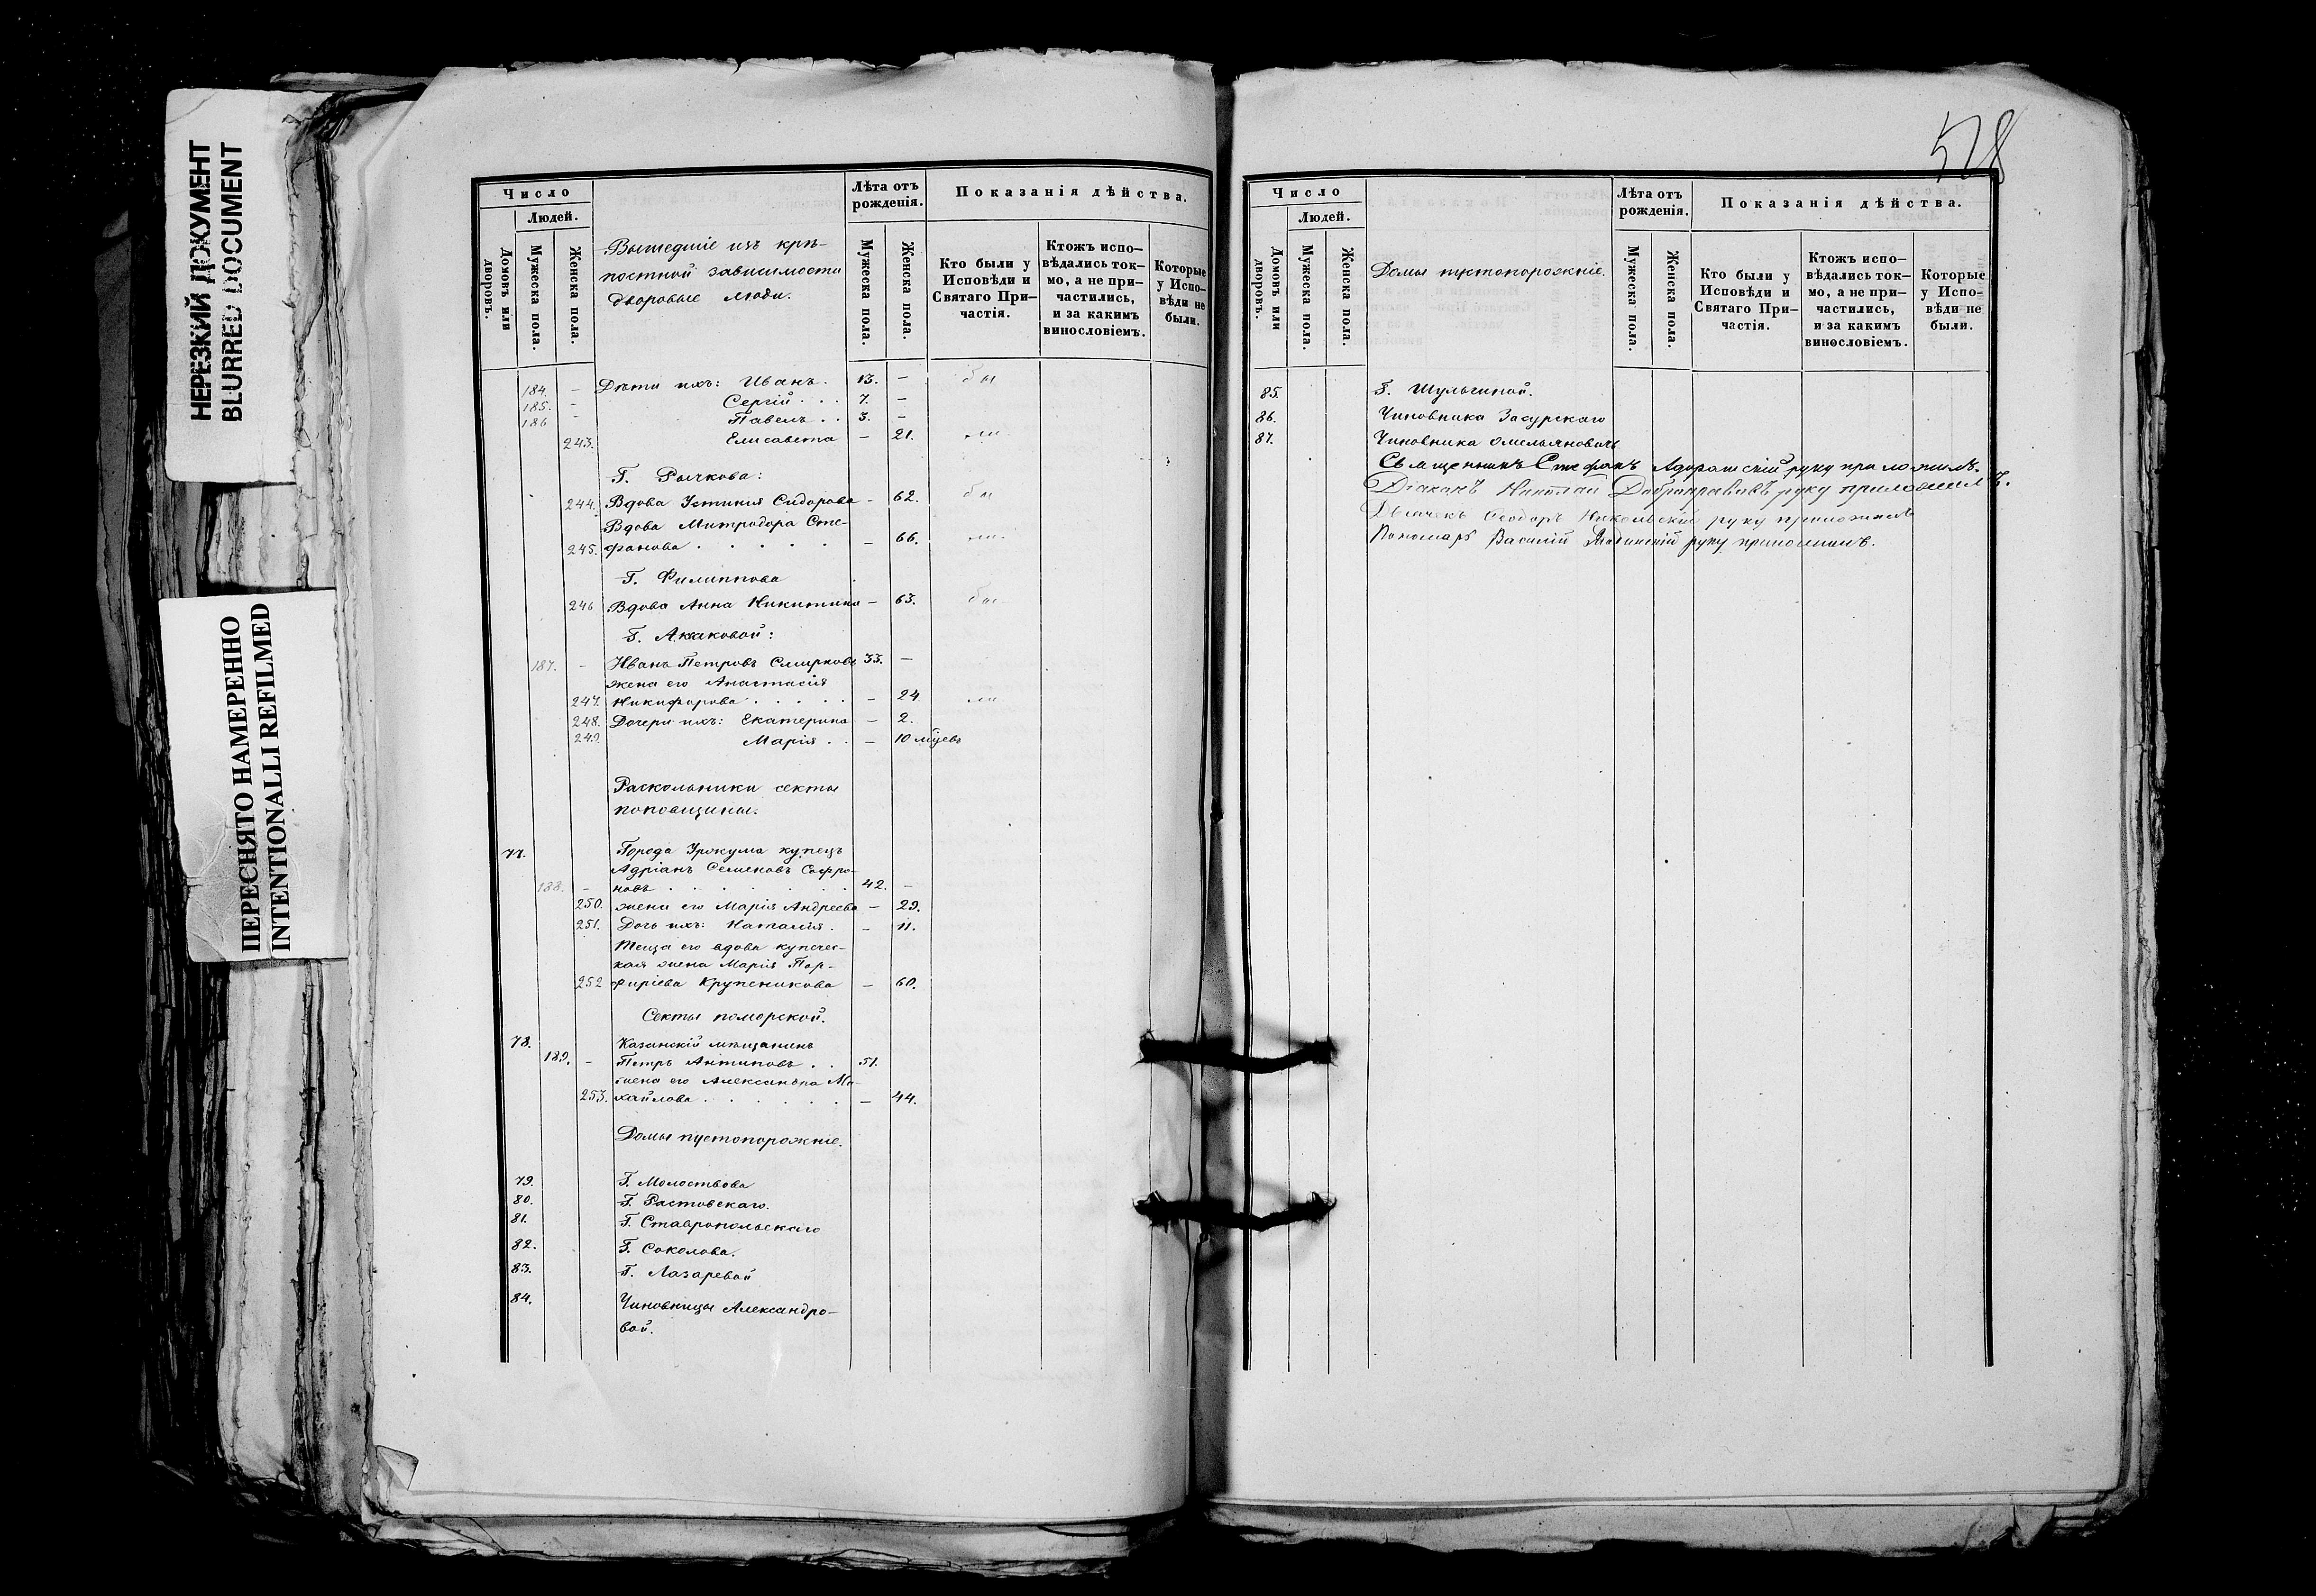 НЕРЕЗКИЙ ДОКУМЕНТ
BLURRED DOCUMENT
ПЕРЕСНЯТО НАМЕРЕННО
INTENTIONALLI REFILMED
Число
Людей.
Домовъ или дворовъ.
Мужеска пола.
Женска пола.
Вышедшіе изъ крѣ-
постной зависимости
дворовые люди.
Лѣта отъ
рожденія.
Мужеска пола.
Женска пола.
Показанія дѣйства.
Кто были у
Исповѣди и
Святаго При-
частія.
Ктожъ испо-
вѣдались ток-
мо, а не при-
частились,
и за какимъ
винословіемъ.
Которые
у Испо-
вѣди не
были.
184. - Дѣти ихъ: Иванъ. 13. - бы
185. - Сергій . . . 7. -
186 - Павелъ . . 3. -
243. Елисавета - 21. ли
Г. Рычкова:
244. Вдова Устинія Сидорова - 62. бы
Вдова Митродора Сте-
245. фанова . . . . . - 66. ли
Г. Филиппова
246 Вдова Анна Никитина - 63. бы
Г. Акаковой:
187. - Иванъ Петровъ Смирновъ 33. -
жена его Анастасія
247. Никифорова . . . . . - 24 ли
248. Дочери ихъ: Екатерина - 2.
249. Марія . . - 10 мцевъ
Раскольники секты
поповщины.
77. Города Уржума купецъ
Адріанъ Семеновъ Софро-
188. - новъ . . . . . . . 42. -
250. жена его Марія Андреева - 29.
251. Дочь ихъ: Наталія. - 11.
Теща его вдова купечес-
кая жена Марія Пор-
252 фиріева Крупеникова - 60.
Секты поморской.
78. Казанскій мѣщанинъ
189. - Петръ Антиповъ . . 51.
жена его Александра Ми-
253. хайлова . . . . . . - 44.
Домы пустопорожніе.
79. Г. Молоствова
80. Г. Растовскаго.
81. Г. Ставропольскаго
82. Г. Соколова.
83. Г. Лазаревой
84. Чиновницы Александро-
вой.
528
Число
Людей.
Домовъ или дворовъ.
Мужеска пола.
Женска пола.
Домы пустопорожніе.
Лѣта отъ
рожденія.
Мужеска пола.
Женска пола.
Показанія дѣйства.
Кто были у
Исповѣди и
Святаго При-
частія.
Ктожъ испо-
вѣдались ток-
мо, а не при-
частились,
и за какимъ
винословіемъ.
Которые
у Испо-
вѣди не
были.
85. Г. Шульгиной.
86. Чиновника Засурскаго
87. Чиновника Омельяновичъ
Священникъ Стефанъ Адоратскій руку приложилъ.
Діаконъ Николай Добронравовъ руку приложилъ.
Дьячекъ Ѳеодоръ Никольскій руку приложилъ
Пономарь Василій руку приложилъ.